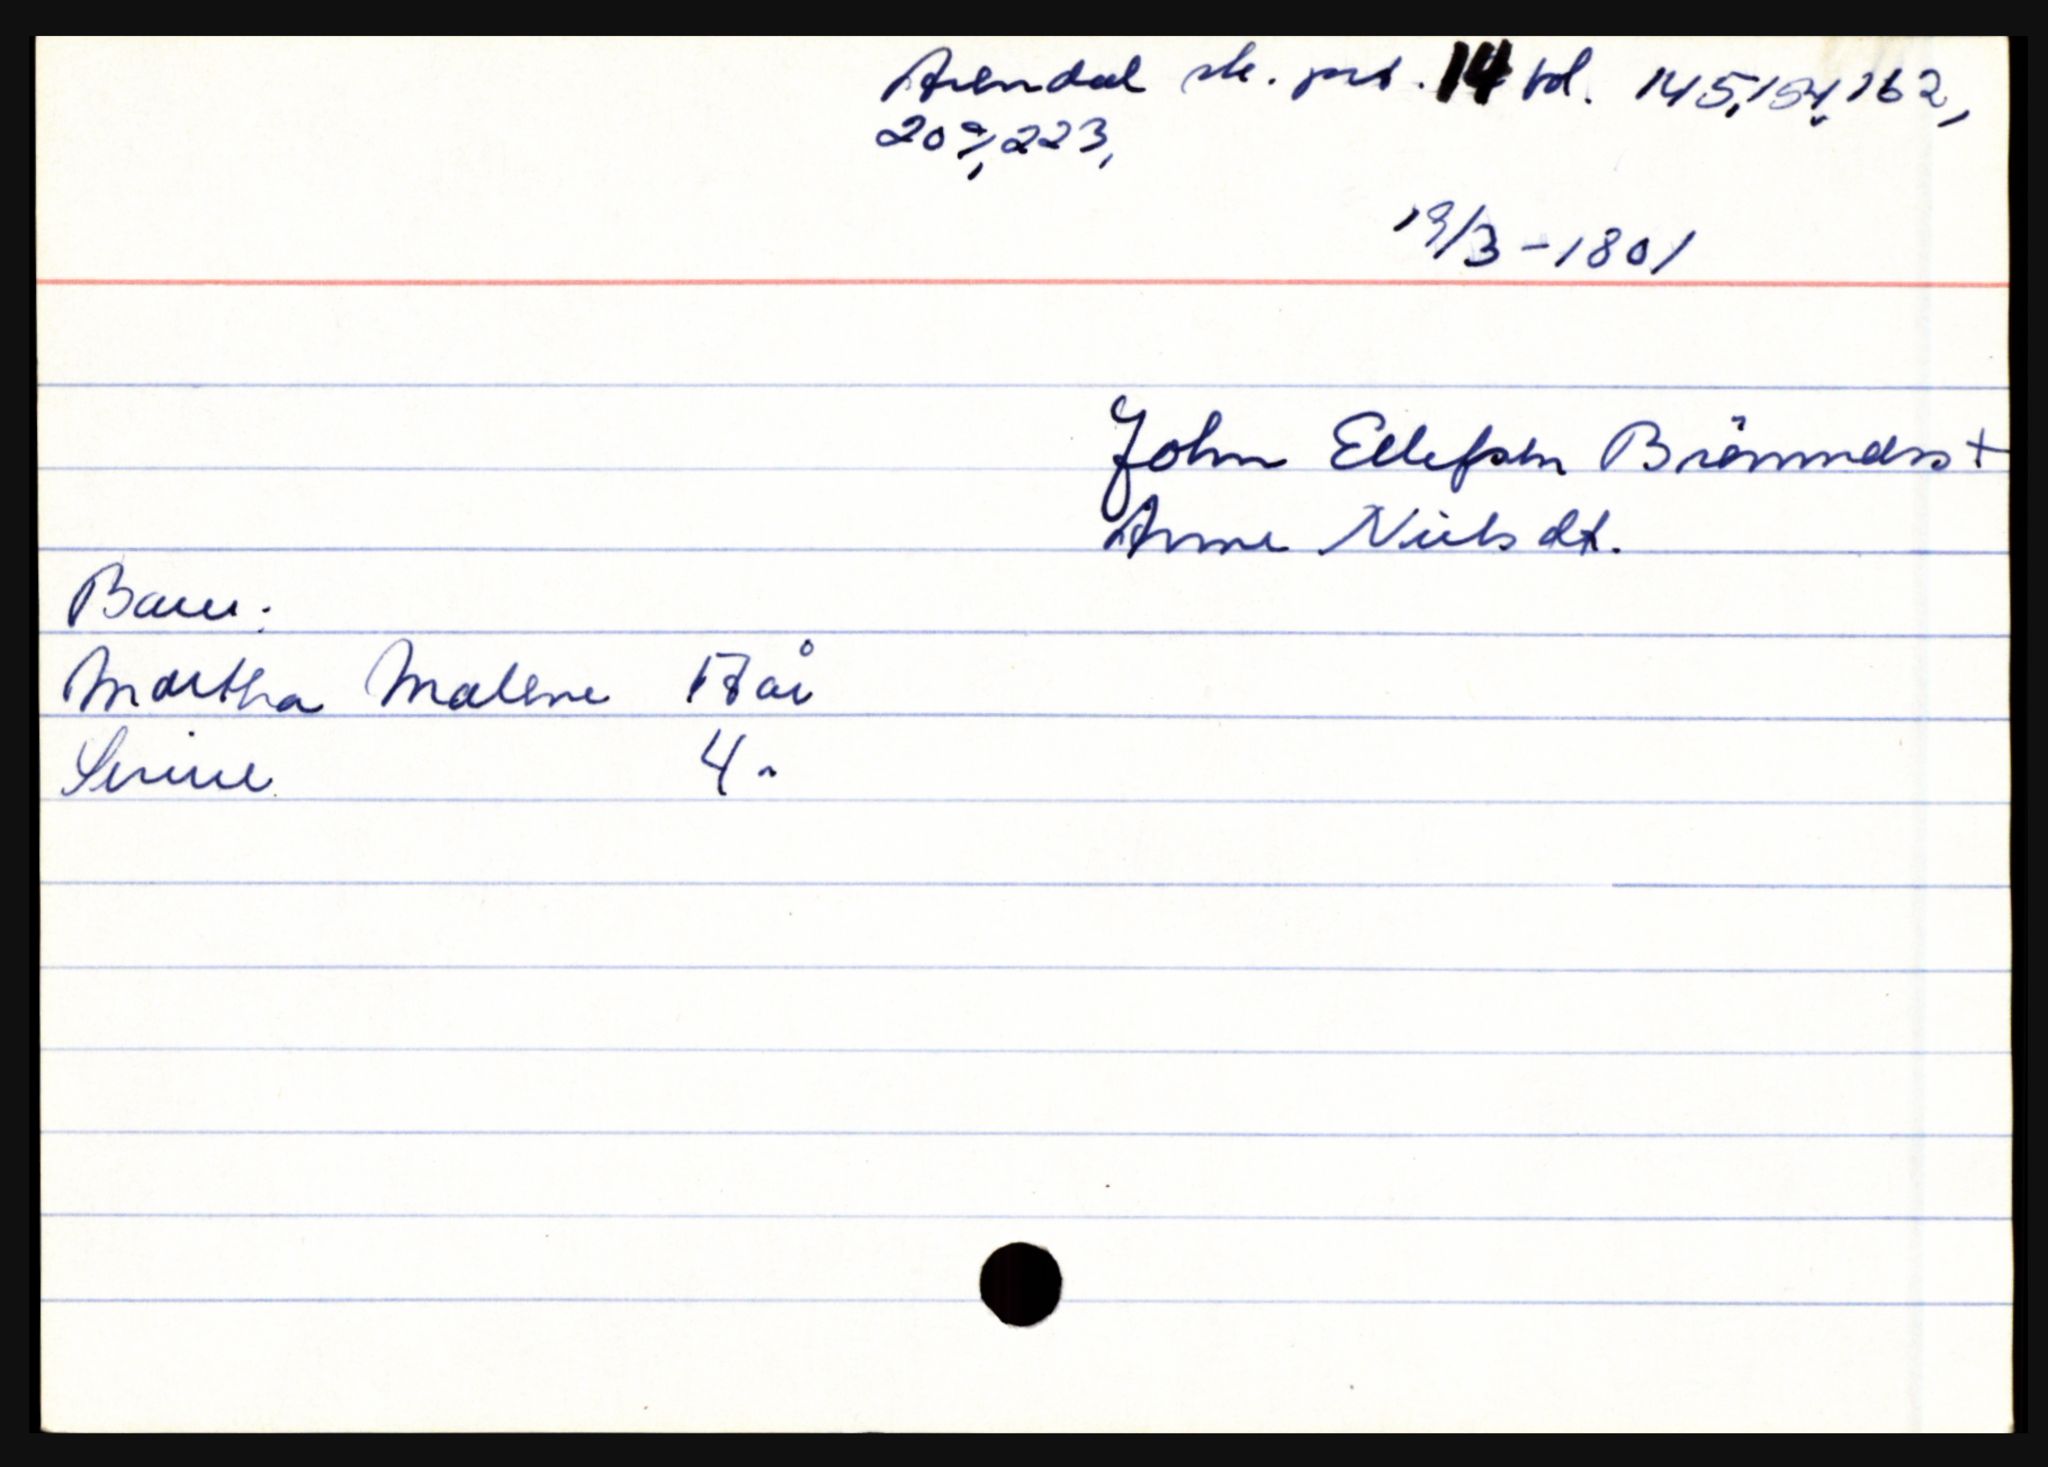 Arendal sk. prt. 14 fol. 145, 154, 162,
209, 223,
19/3 - 1801
John Ellefsen Brömmdss +
Anne Nielsdt.
Barn:
Martha Malene 17 år
Serine 4 "